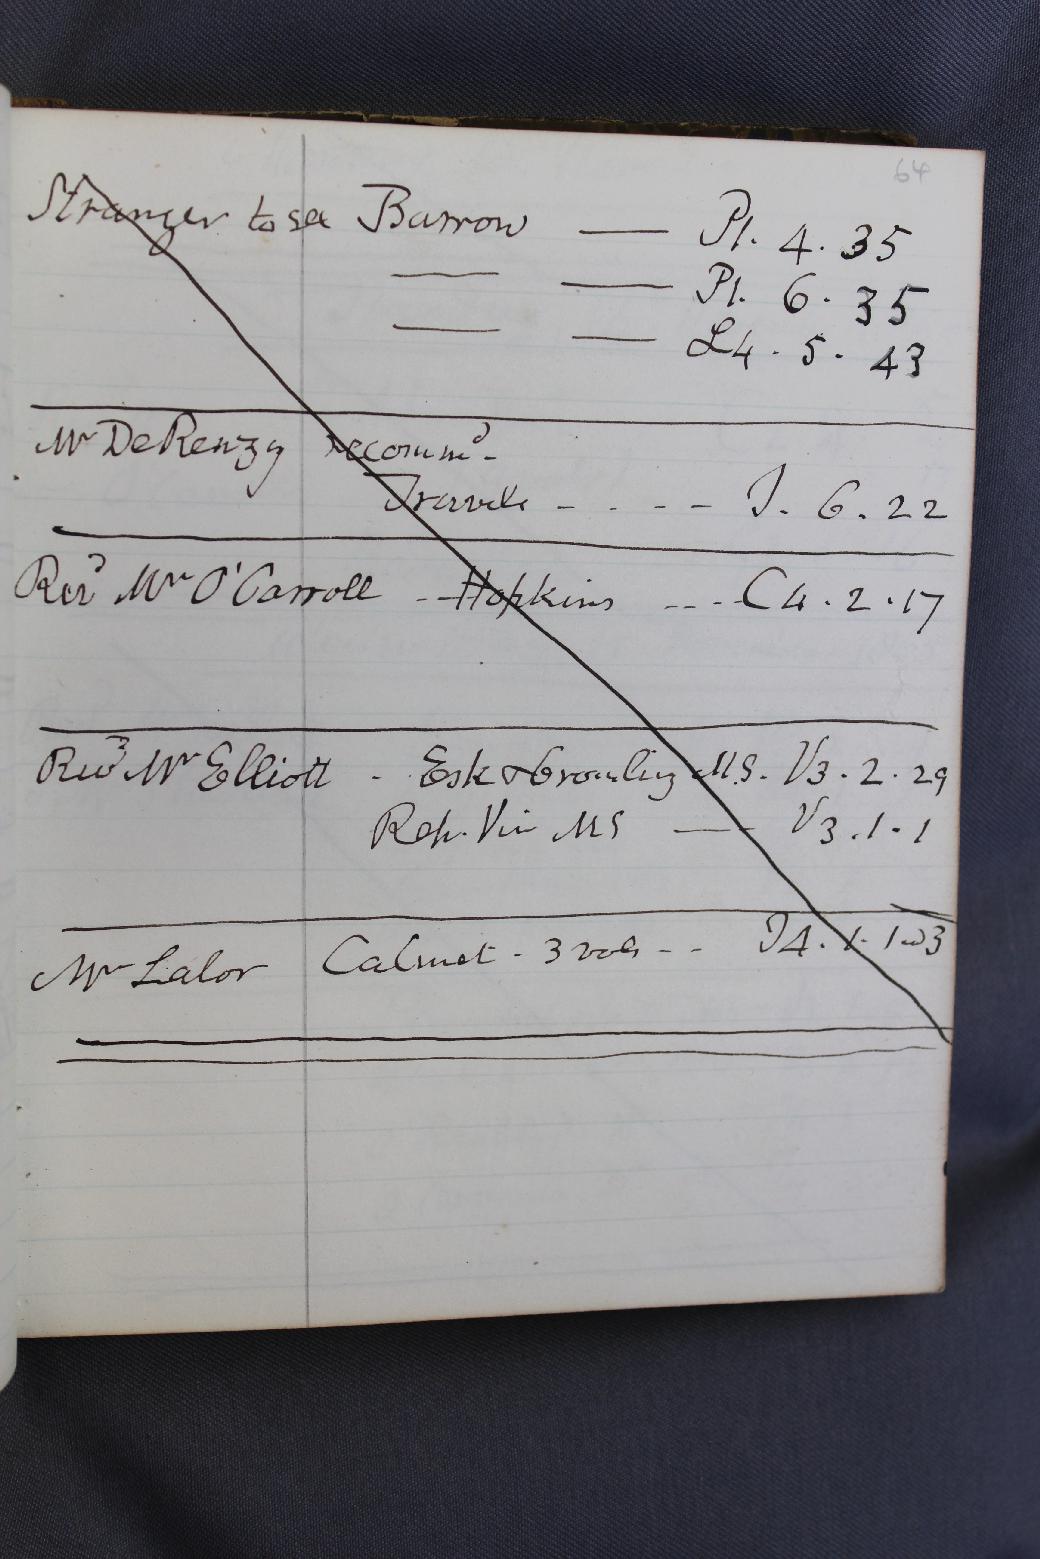 64
Stranger to see Barrow — P1. 4. 35
— — P1. 6. 35
— — L4. 5. 43
Mr DeRenzy recommd-
Travels - - - - J. 6. 22
Revd Mr O'Carroll -- Hopkins ---- C4. 2. 17
Revd Mr Elliott - Esk & MS. V3. 2. 29
Rep. Vin MS — V3. 1. 1
Mr Lalor Calmet - 3 vols -- J4. 1. 1 to 3